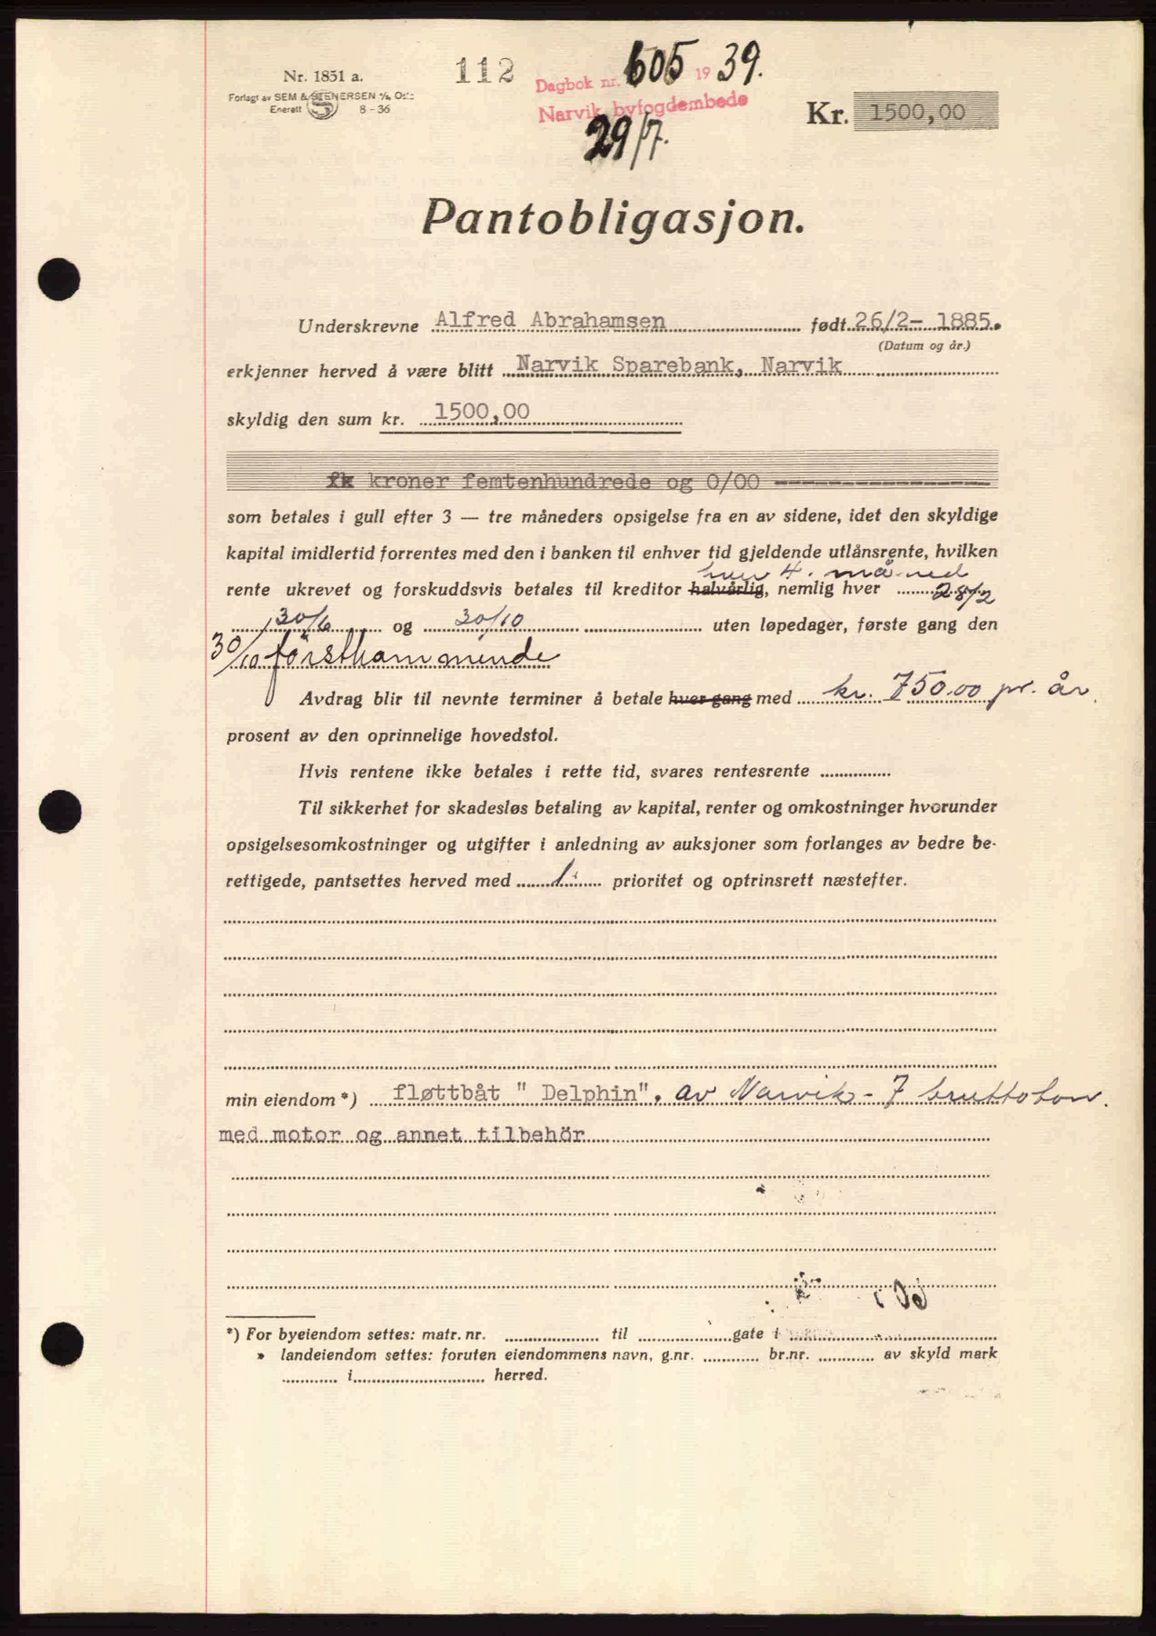 Nr. 1851 a.
Forlagt av SEM & STENERSEN A/S, Oslo
Enerett 8 - 36
112
Dagbok nr. 605 1939.
Narvik byfogdembede
29/7.
Kr. 1500,00
Pantobligasjon.
Underskrevne Alfred Abrahamsen født 26/2- 1885.
(Datum og år.)
erkjenner herved å være blitt Narvik Sparebank, Narvik
skyldig den sum kr. 1500,00
fk kroner femtenhundrede og 0/00
som betales i gull efter 3 — tre måneders opsigelse fra en av sidene, idet den skyldige
kapital imidlertid forrentes med den i banken til enhver tid gjeldende utlånsrente, hvilken
hver 4. måned
rente ukrevet og forskuddsvis betales til kreditor halvårlig, nemlig hver 28/2
30/6 og 30/10 uten løpedager, første gang den
30/10 førstkommende
Avdrag blir til nevnte terminer å betale hver gang med kr. 750.00 pr. år.
prosent av den oprinnelige hovedstol.
Hvis rentene ikke betales i rette tid, svares rentesrente
Til sikkerhet for skadesløs betaling av kapital, renter og omkostninger hvorunder
opsigelsesomkostninger og utgifter i anledning av auksjoner som forlanges av bedre be-
rettigede, pantsettes herved med 1. prioritet og optrinsrett næstefter.
min eiendom *) fløttbåt " Delphin", av Narvik - 7 bruttoton.
med motor og annet tilbehör
*) For byeiendom settes: matr. nr. til gate i
» landeiendom settes: foruten eiendommens navn, g.nr. br.nr. av skyld mark
i herred.